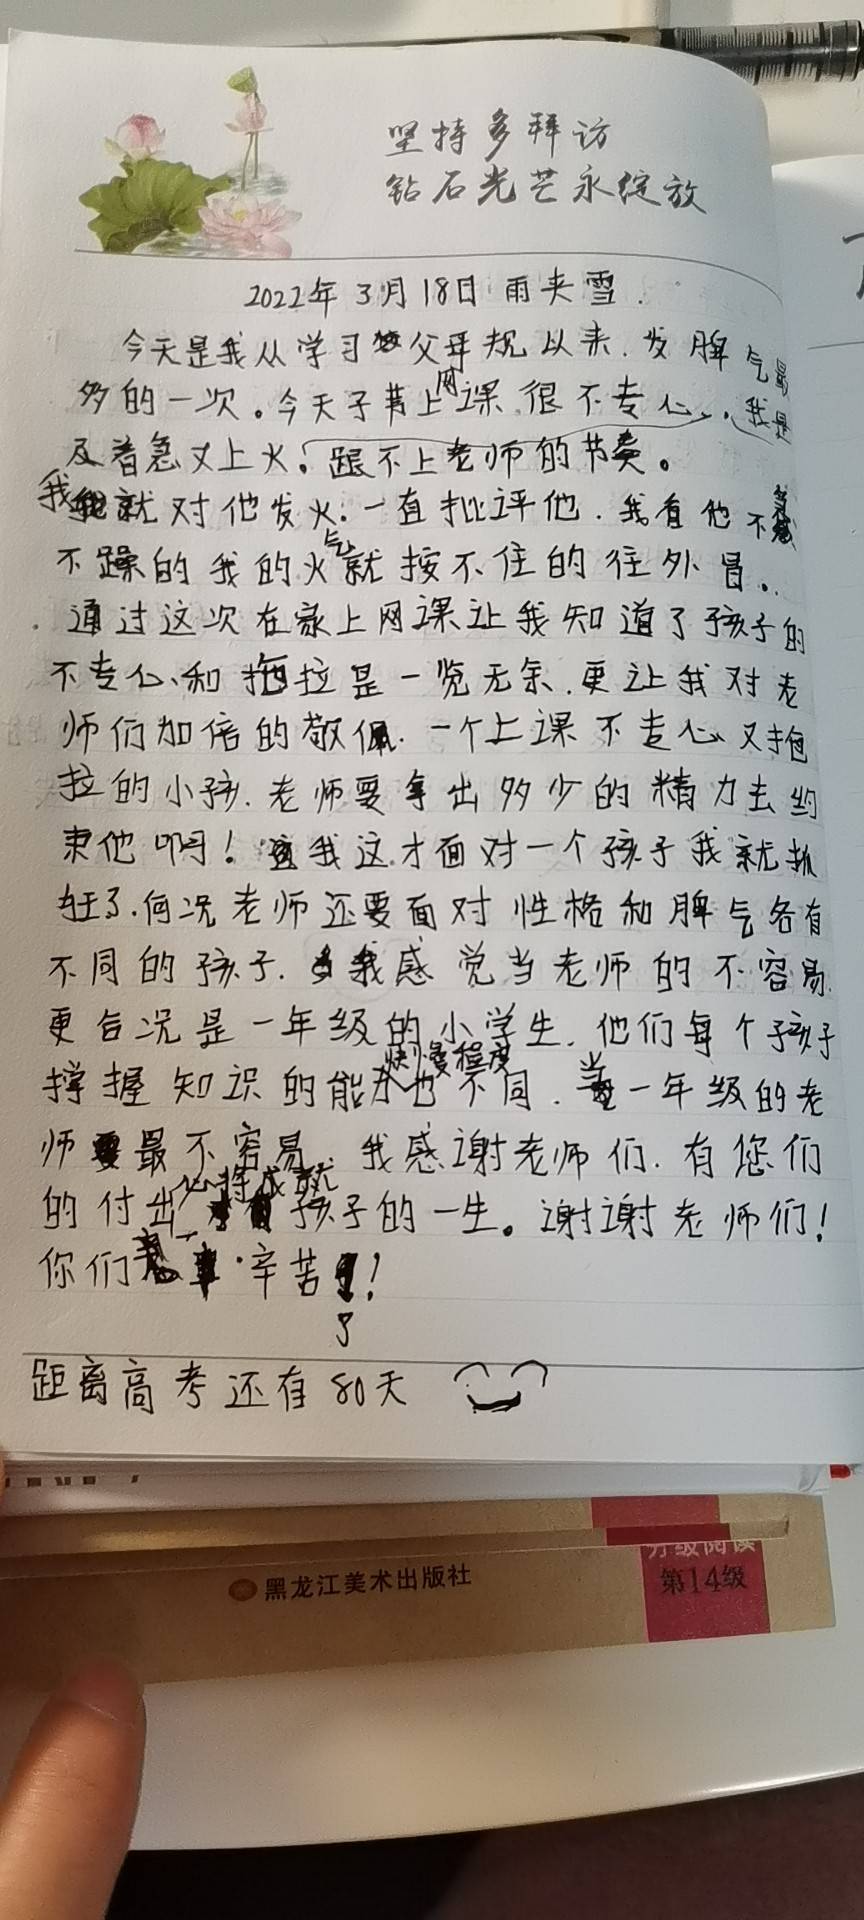 坚持多拜访
钻石光芒永绽放
2022年3月18日 雨夹雪.
今天是我从学习父母规以来.发脾气最
多的一次。今天子芮上网课很不专心.我是
及着急又上火。跟不上老师的节奏。
我就对他发火.一直批评他.我看他不急
不躁的我的火气就按不住的往外冒。
通过这次在家上网课让我知道了孩子的
不专心、和拖拉是一览无余.更让我对老
师们加倍的敬佩.一个上课不专心又拖
拉的小孩.老师要拿出多少的精力去约
束他啊!我这才面对一个孩子我就抓
狂了.何况老师还要面对性格和脾气各有
不同的孩子.我感觉当老师的不容易.
更合况是一年级的小学生.他们每个孩子
撑握知识的能力快慢程度也不同.当一年级的老
师最不容易.我感谢老师们.有您们
的付出必将成就孩子的一生。谢谢老师们!
你们辛苦了!
距离高考还有80天
黑龙江美术出版社
分级阅读
第14级